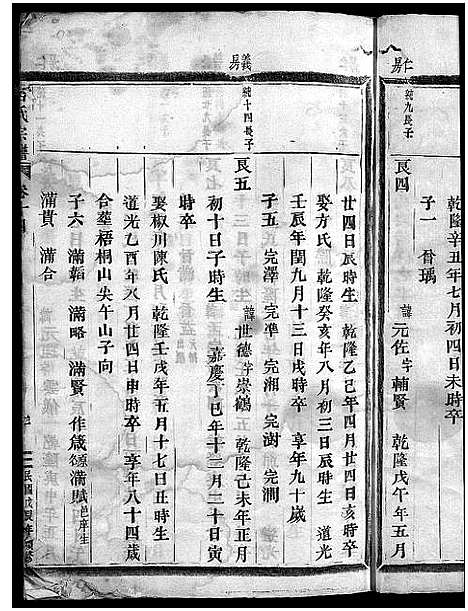 仁房
純九長子
乾隆辛丑年七月初四日未時卒
子一 
艮四
諱元佐字輔賢 乾隆戊午年五月
廿四日辰時生 乾隆乙巳年四月廿四日亥時卒
娶方氏 乾隆癸亥年八月初三日辰時生 道光
壬辰年閏九月十三日戌時卒 享年九十歲
子五 完澤 完準 完湘 完澍 完澗
義房
純十四長子
艮五
諱世德字崇鶴 乾隆己未年正月
初十日子時生 嘉慶丁巳年十二月二十日寅
時卒
娶椒川陳氏 乾隆壬戌年五月十七日丑時生
道光乙酉年八月廿四日申時卒 享年八十四歲
合葬梧桐山尖午山子向
子六 滿韜 滿略 滿賢 滿賦邑庠生
滿貴 滿合
氏宗譜
民國戊